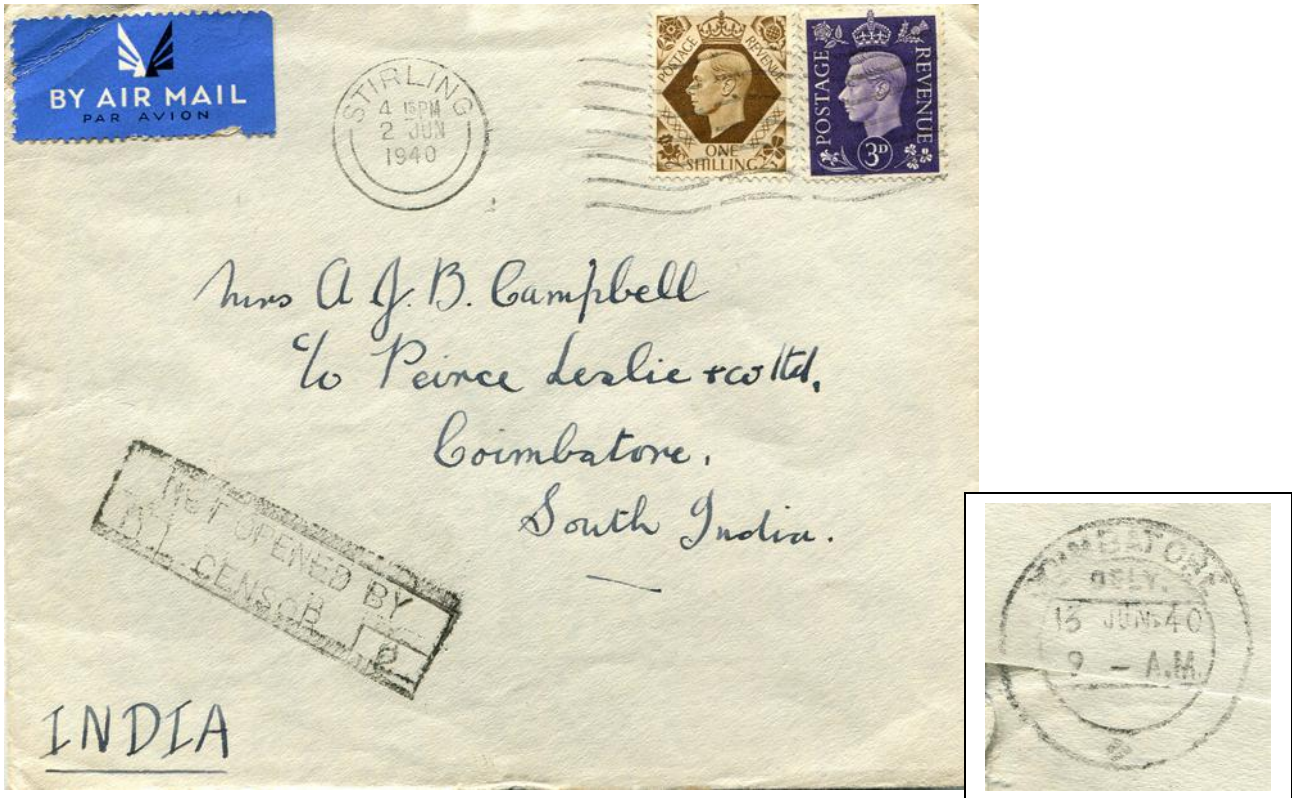 BY AIR MAIL
PAR AVION
STIRLING
4 15PM
2 JUN
1940
POSTAGE REVENUE
ONE
SHILLING
POSTAGE REVENUE
3D
Mrs A J. B. Campbell
c/o Peirce Leslie + co ltd,
Coimbatore,
South India.
NOT OPENED BY
CENSOR
INDIA
COIMBATORE
DELY.
13 JUN. 40
9 - A.M.